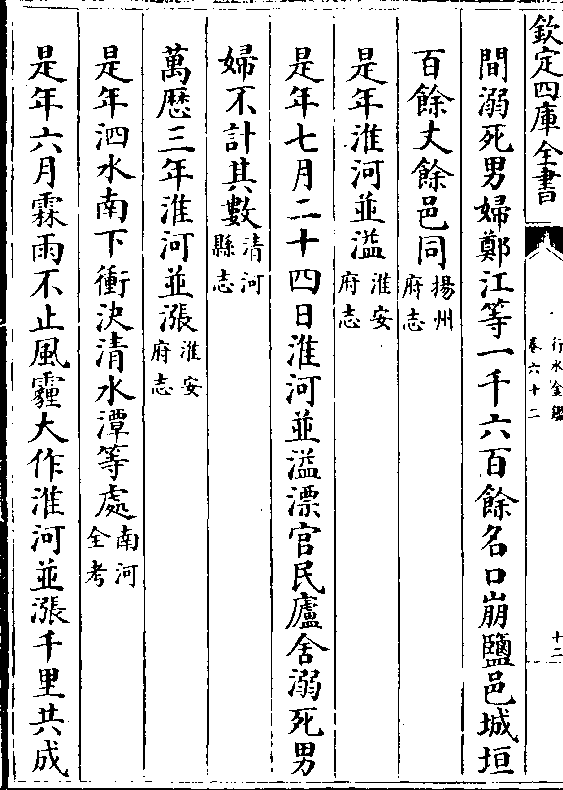 欽定四庫全書
行水金鑑
卷六十二
十二
間溺死男婦鄭江等一千六百餘名口崩鹽邑城垣
百餘丈餘邑同揚州府志
是年淮河並溢淮安府志
是年七月二十四日淮河並溢漂官民廬舍溺死男
婦不計其數清河縣志
萬歷三年淮河並漲淮安府志
是年泗水南下衝決清水潭等處南河全考
是年六月霖雨不止風霾大作淮河並漲千里共成